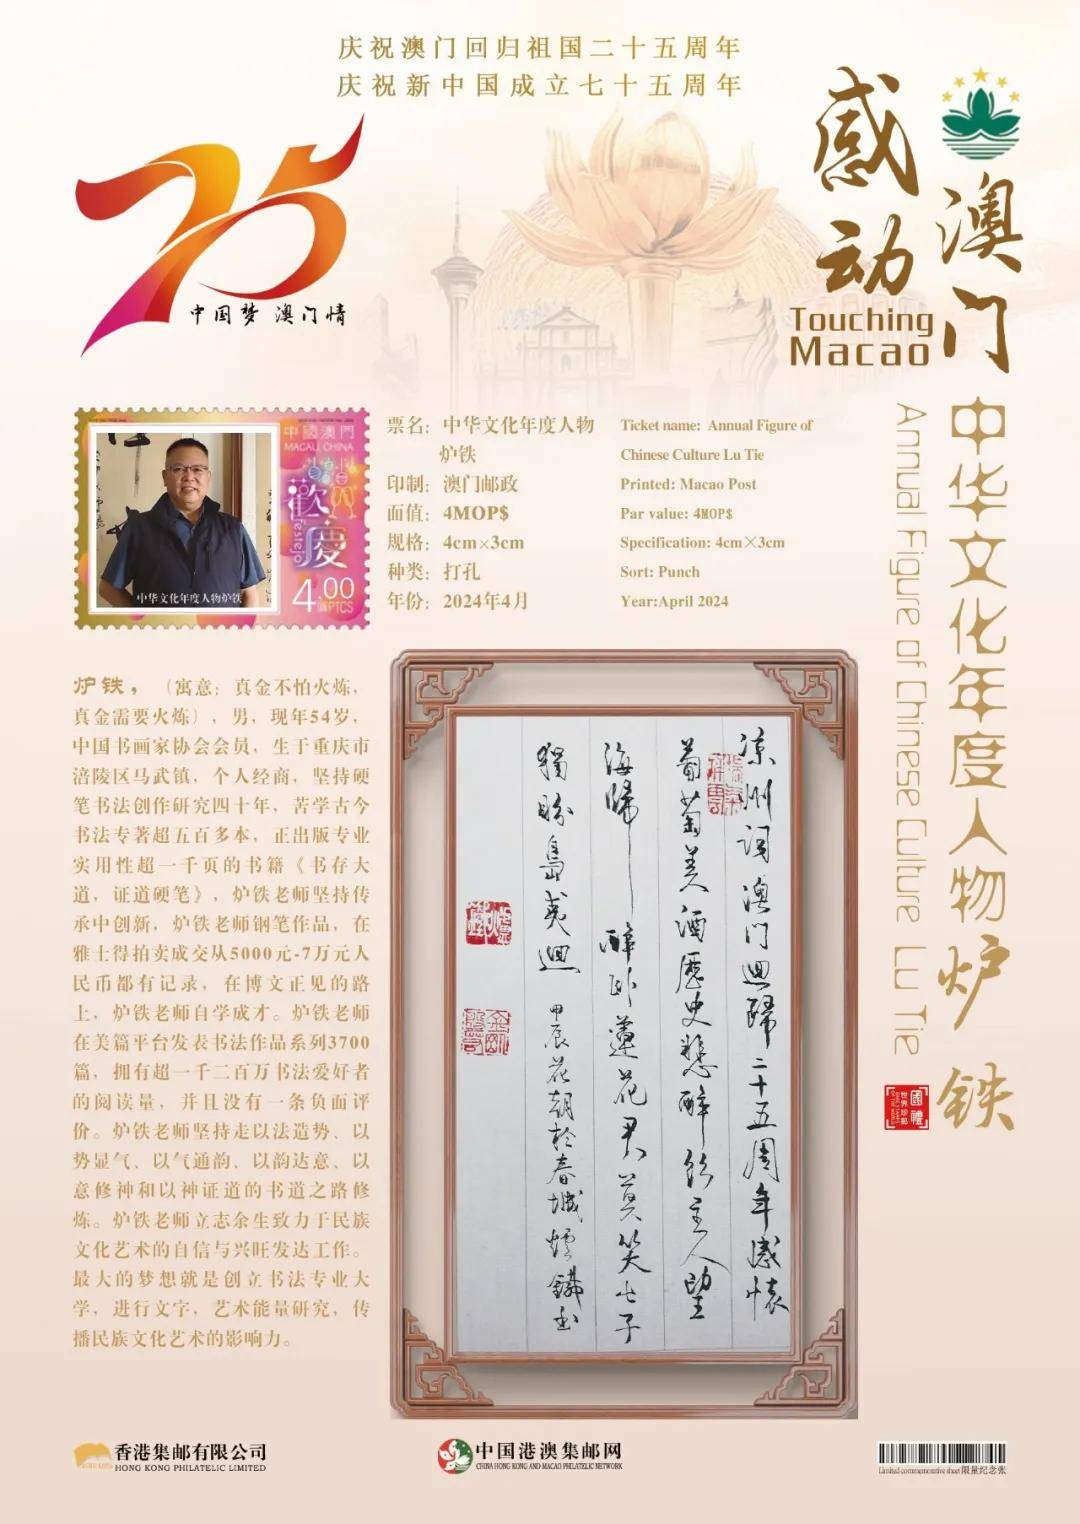 庆祝澳门回归祖国二十五周年
庆祝新中国成立七十五周年
感动
澳门
Touching
Macao
75
中国梦 澳门情
中國澳門
MACAU, CHINA
歡慶
Festejo
4.00
PTCS
中华文化年度人物炉铁
票名：中华文化年度人物
炉铁
印制：澳门邮政
面值：4MOP$
规格：4cm×3cm
种类：打孔
年份：2024年4月
Ticket name: Annual Figure of
Chinese Culture Lu Tie
Printed: Macao Post
Par value: 4MOP$
Specification: 4cm×3cm
Sort: Punch
Year:April 2024
中华文化年度人物炉铁
Annual Figure of Chinese Culture Lu Tie
國禮
炉铁，（寓意：真金不怕火炼，
真金需要火炼），男，现年54岁，
中国书画家协会会员，生于重庆市
涪陵区马武镇，个人经商，坚持硬
笔书法创作研究四十年，苦学古今
书法专著超五百多本，正出版专业
实用性超一千页的书籍《书存大
道，证道硬笔》，炉铁老师坚持传
承中创新，炉铁老师钢笔作品，在
雅士得拍卖成交从5000元-7万元人
民币都有记录，在博文正见的路
上，炉铁老师自学成才。炉铁老师
在美篇平台发表书法作品系列3700
篇，拥有超一千二百万书法爱好者
的阅读量，并且没有一条负面评
价。炉铁老师坚持走以法造势、以
势显气、以气通韵、以韵达意、以
意修神和以神证道的书道之路修
炼。炉铁老师立志余生致力于民族
文化艺术的自信与兴旺发达工作。
最大的梦想就是创立书法专业大
学，进行文字，艺术能量研究，传
播民族文化艺术的影响力。
凉州词澳门迴歸二十五周年感懷
葡萄美酒歷史愁醉飲主人望
海歸醉卧蓮花君莫笑七子
獨盼島夷迴
甲辰花朝於春城爐鐵書
香港集邮有限公司
HONG KONG PHILATELIC LIMITED
中国港澳集邮网
CHINA HONG KONG AND MACAO PHILATELIC NETWORK
Limited commemorative sheet 限量纪念张